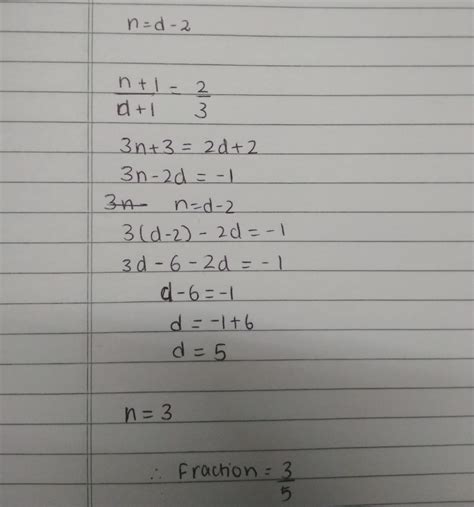 n=d-2
n+1 = 2
d+1 3
3n+3 = 2d+2
3n-2d = -1
3n- n=d-2
3(d-2) - 2d = -1
3d - 6 - 2d = -1
d-6=-1
d = -1+6
d = 5
n = 3
∴ Fraction = 3
5